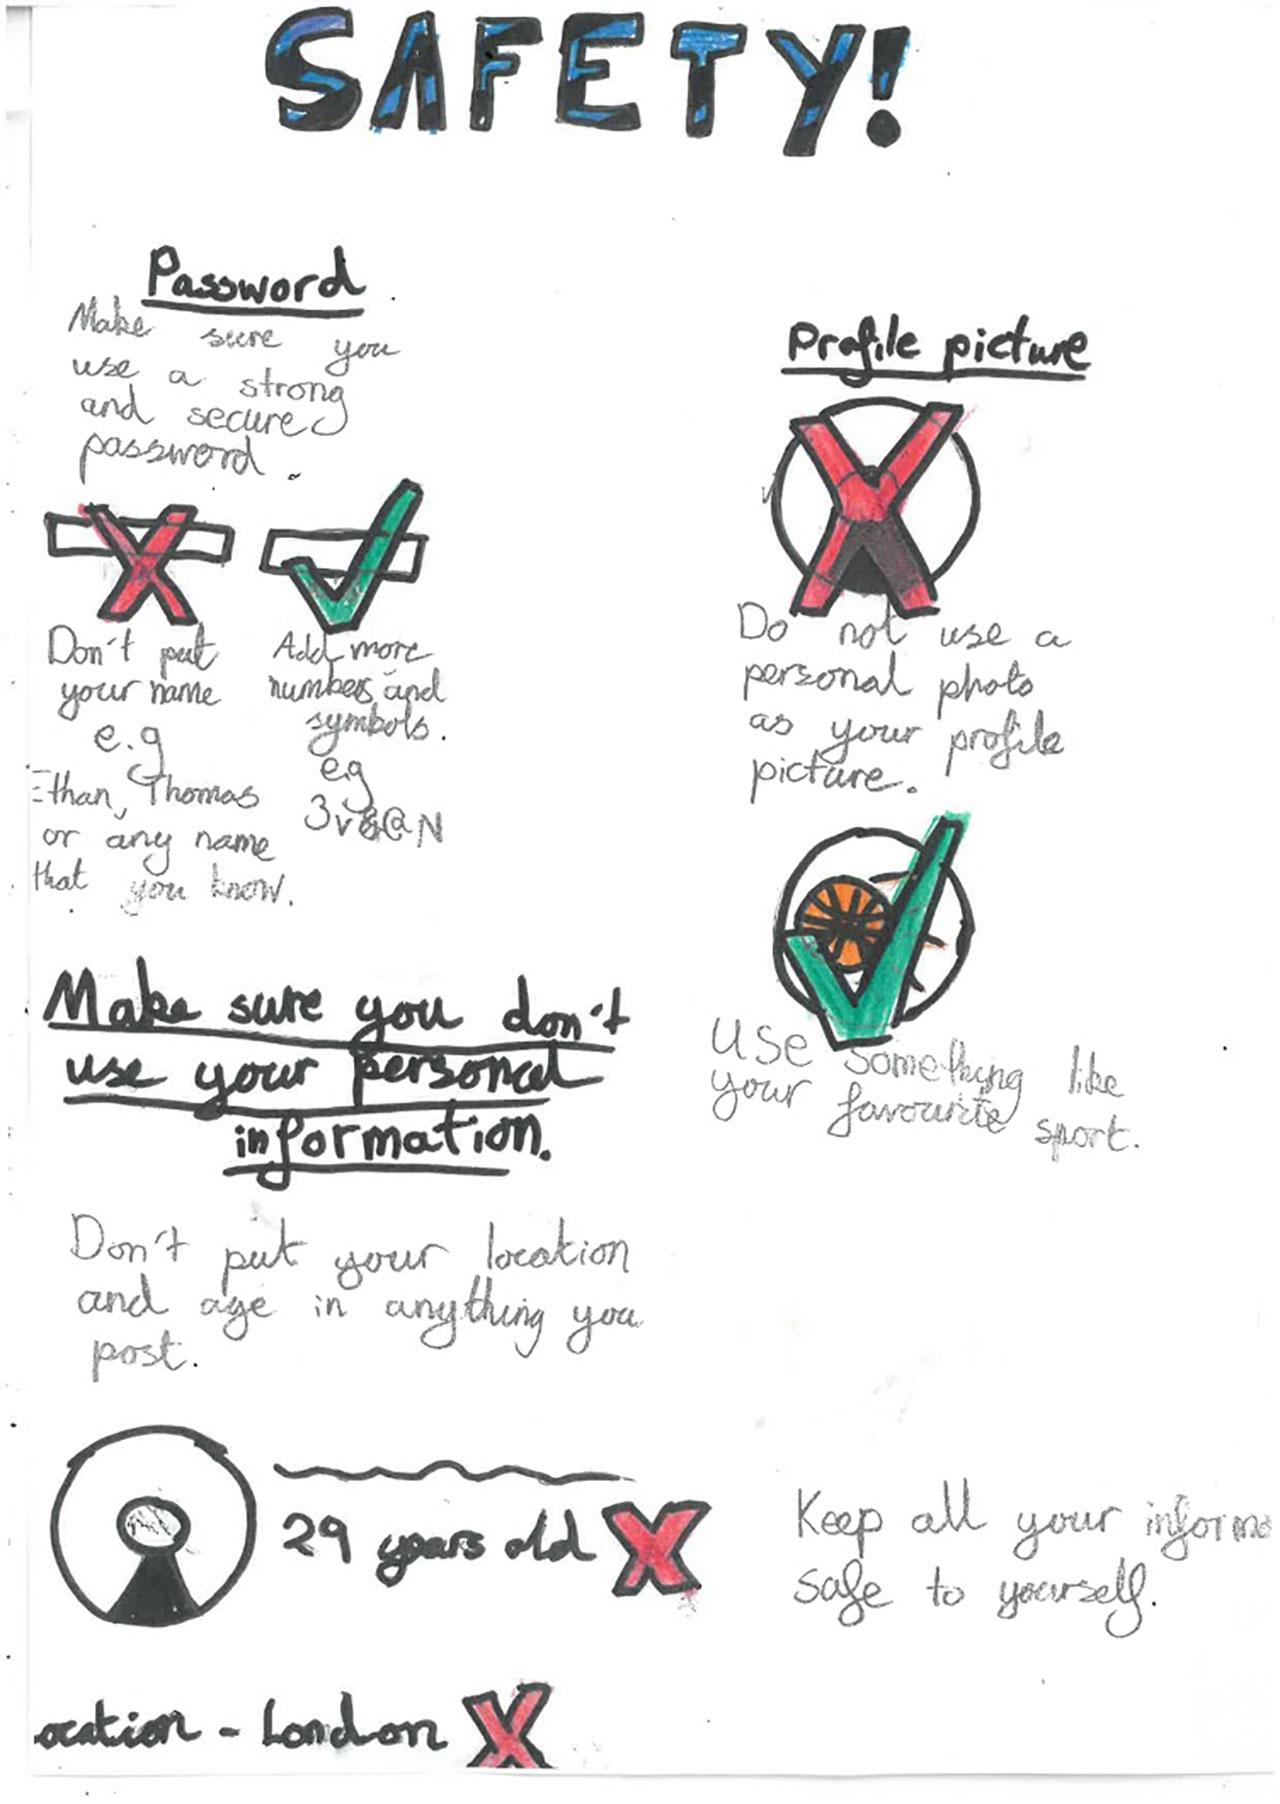 SAFETY!
Password
Make sure you
use a strong
and secure
password.
Don't put
your name
e.g
Ethan, Thomas
or any name
that you know.
Add more
numbers and
symbols.
e.g
3v&@N
Profile picture
Do not use a
personal photo
as your profile
picture.
Use something like
your favourite sport.
Make sure you don't
use your personal
information.
Don't put your location
and age in anything you
post.
29 years old X
ocation - London X
Keep all your informa
safe to yourself.